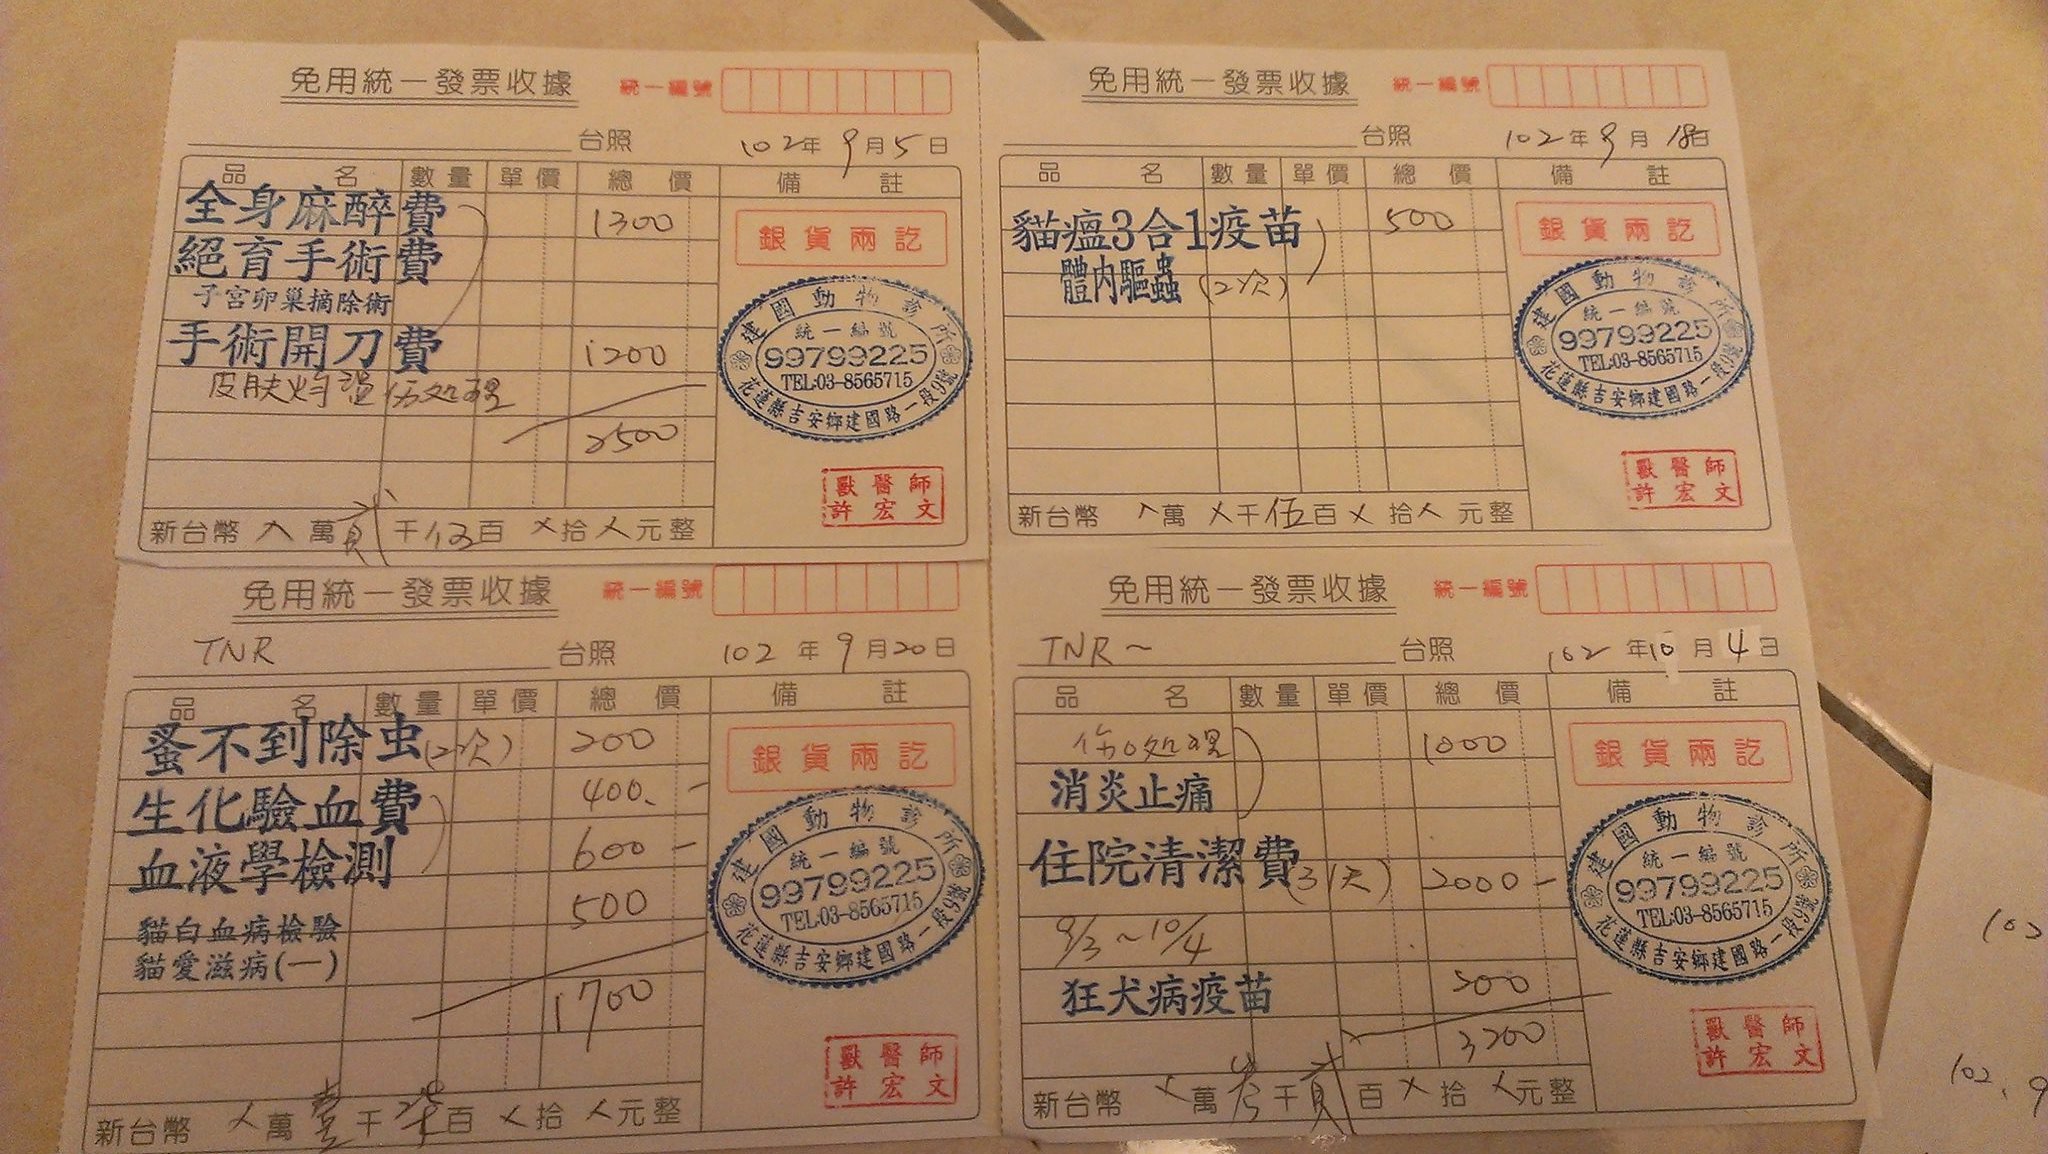 免用統一發票收據 統一編號
台照 102年9月5日
品名 數量 單價 總價 備註
全身麻醉費 1300
絕育手術費
子宮卵巢摘除術
手術開刀費 1200
皮肤灼 伤处理
2500
銀貨兩訖
建國動物診所
統一編號
99799225
TEL:03-8565715
花蓮縣吉安鄉建國路一段9號
獸醫師
許宏文
新台幣 萬貳千伍百 拾 元整
免用統一發票收據 統一編號
台照 102年9月18日
品名 數量 單價 總價 備註
貓瘟3合1疫苗 500
體內驅蟲 (2次)
銀貨兩訖
建國動物診所
統一編號
99799225
TEL:03-8565715
花蓮縣吉安鄉建國路一段9號
獸醫師
許宏文
新台幣 萬 千伍百 拾 元整
免用統一發票收據 統一編號
TNR 台照 102年9月20日
品名 數量 單價 總價 備註
蚤不到除虫(2次) 200
生化驗血費 400.-
血液學檢測 600-
500
貓白血病檢驗
貓愛滋病(一)
1700
銀貨兩訖
建國動物診所
統一編號
99799225
TEL:03-8565715
花蓮縣吉安鄉建國路一段9號
獸醫師
許宏文
新台幣 萬壹千柒百 拾 元整
免用統一發票收據 統一編號
TNR~ 台照 102年10月4日
品名 數量 單價 總價 備註
伤口处理 1000
消炎止痛
住院清潔費 (天) 2000-
9/3~10/4
狂犬病疫苗 200
3200
銀貨兩訖
建國動物診所
統一編號
99799225
TEL:03-8565715
花蓮縣吉安鄉建國路一段9號
獸醫師
許宏文
新台幣 萬叁千貳百 拾 元整
102
102.9